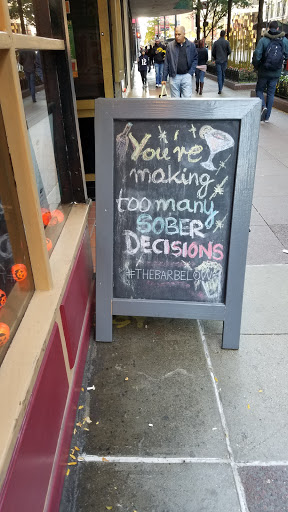 You're
making
too many
SOBER
DECISIONS
#THEBARBELOW